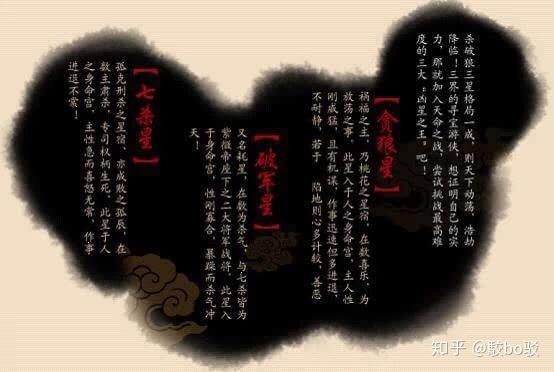 杀破狼三星格局一成，则天下动荡，浩劫
降临！三界的寻宝游侠，想证明自己的实
力，那就加入天命之战，尝试挑战最高难
度的三大“凶星之王”吧！
【贪狼星】
祸福之主，乃桃花之星宿，在数喜乐，为
放荡之事，此星入于人之身命宫，主人性
刚威猛，且有机谋，作事迅速但多进退，
不耐静，若于 陷地则心多计较，善恶
【破军星】
又名耗星，在数为杀气，与七杀皆为
紫微帝座下之二大将军战将，此星入
于身命宫，性刚寡合，暴躁而杀气冲
天！
【七杀星】
孤克刑杀之星宿，亦成败之孤辰，在
数主肃杀，专司权柄生死。此星于人
之身命宫，主性急而喜怒无常，作事
进退不常！
知乎 @駮bo驳